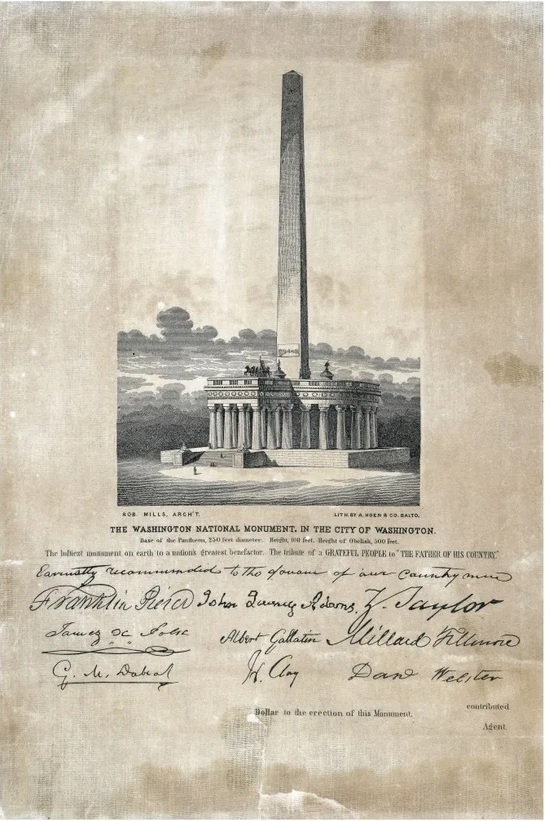 ROB. MILLS, ARCH'T. LITH. BY A. HOEN & CO. BALTO.
THE WASHINGTON NATIONAL MONUMENT, IN THE CITY OF WASHINGTON.
Base of the Pantheon, 250 feet diameter. Height, 100 feet. Height of Obelisk, 500 feet.
The loftiest monument on earth to a nation's greatest benefactor. The tribute of a GRATEFUL PEOPLE to "THE FATHER OF HIS COUNTRY"
Earnestly recommended to the favour of our Countrymen
Franklin Pierce John Quincy Adams, Z. Taylor
James K Polk Albert Gallatin Millard Fillmore
G. M. Dallas H. Clay Danl Webster
contributed
Dollar to the erection of this Monument.
Agent.